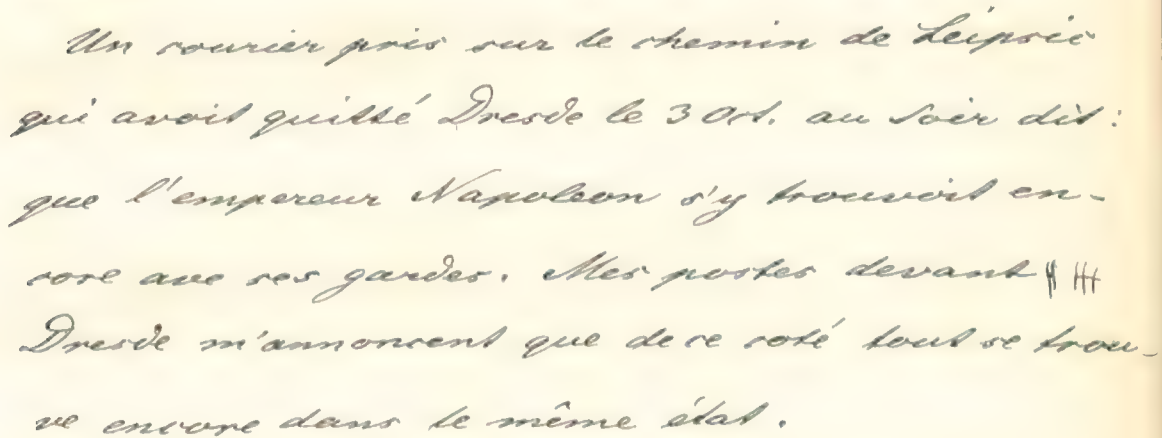 Un courier pris sur le chemin de Leipsic
qui avoit quitté Dresde le 3 Oct. au soir dit:
que l'empereur Napoleon s'y trouvoit en-
core ave ses gardes. Mes postes devant
Dresde m'annoncent que de ce coté tout se trou-
ve encore dans le même état.